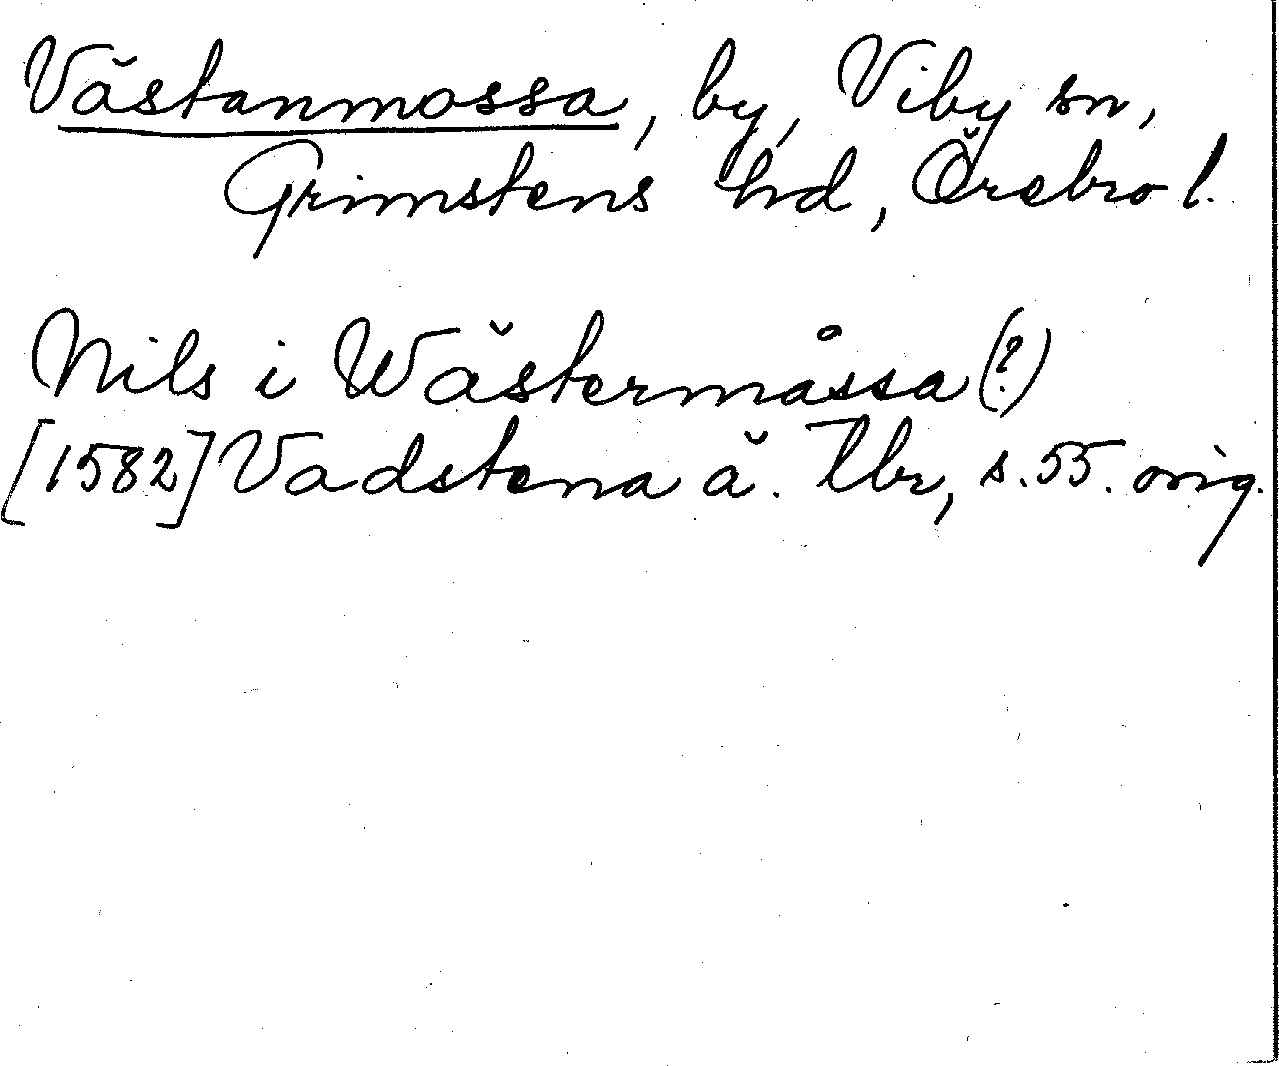 Västanmossa, by, Viby sn,
Grimstens hd, Örebro l.
Nils i Wästermåssa (?)
[1582] Vadstena ä. Tbr, s. 55. orig.